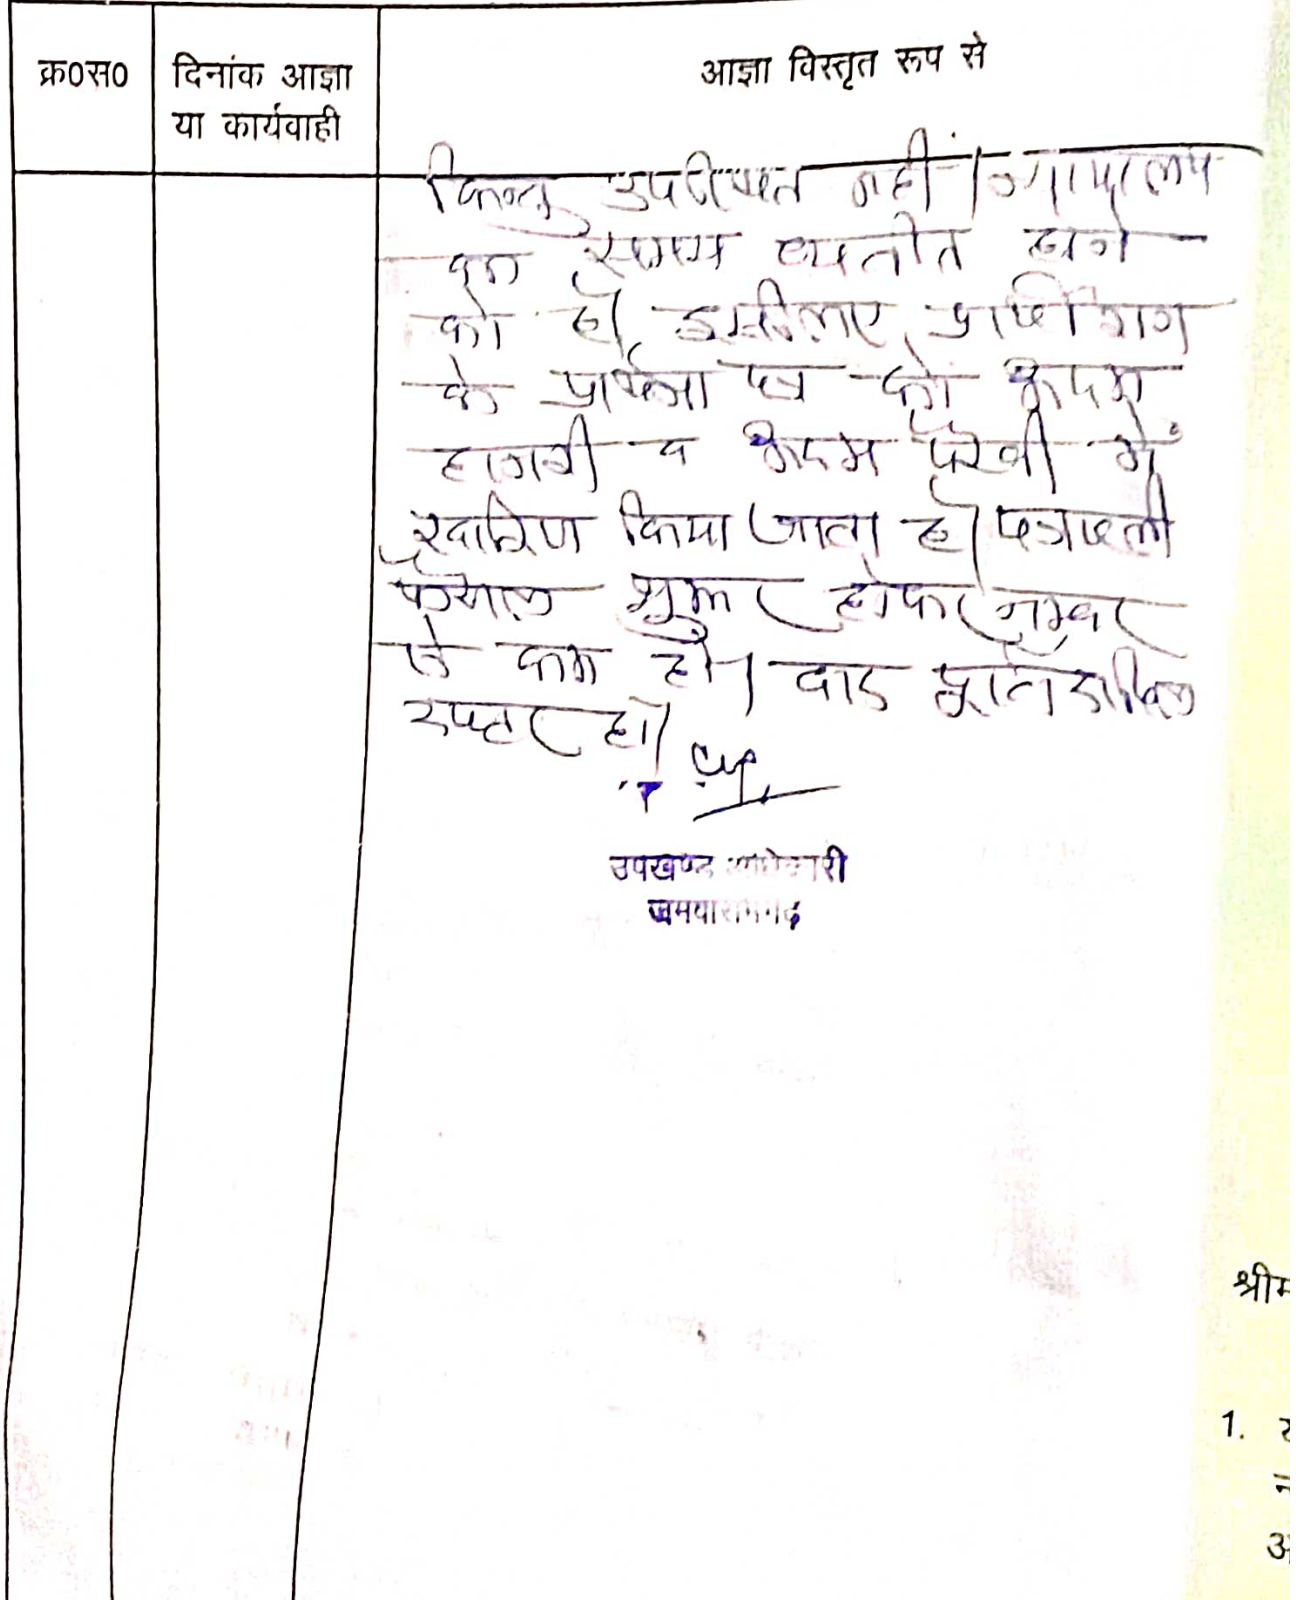 क्र0स0
दिनांक आज्ञा
या कार्यवाही
आज्ञा विस्तृत रूप से
किन्तु उपस्थित नहीं। न्यायालय
का समय व्यतीत होने
को है। इसलिए प्रार्थीगण
के प्रार्थना पत्र को अदम
हाजरी व अदम पैरवी में
खारिज किया जाता है। पत्रावली
फैसल शुमार होकर नम्बर
से कम हो। बाद
हो।
उपखण्ड अधिकारी
जमवारामगढ़
श्रीम
1.